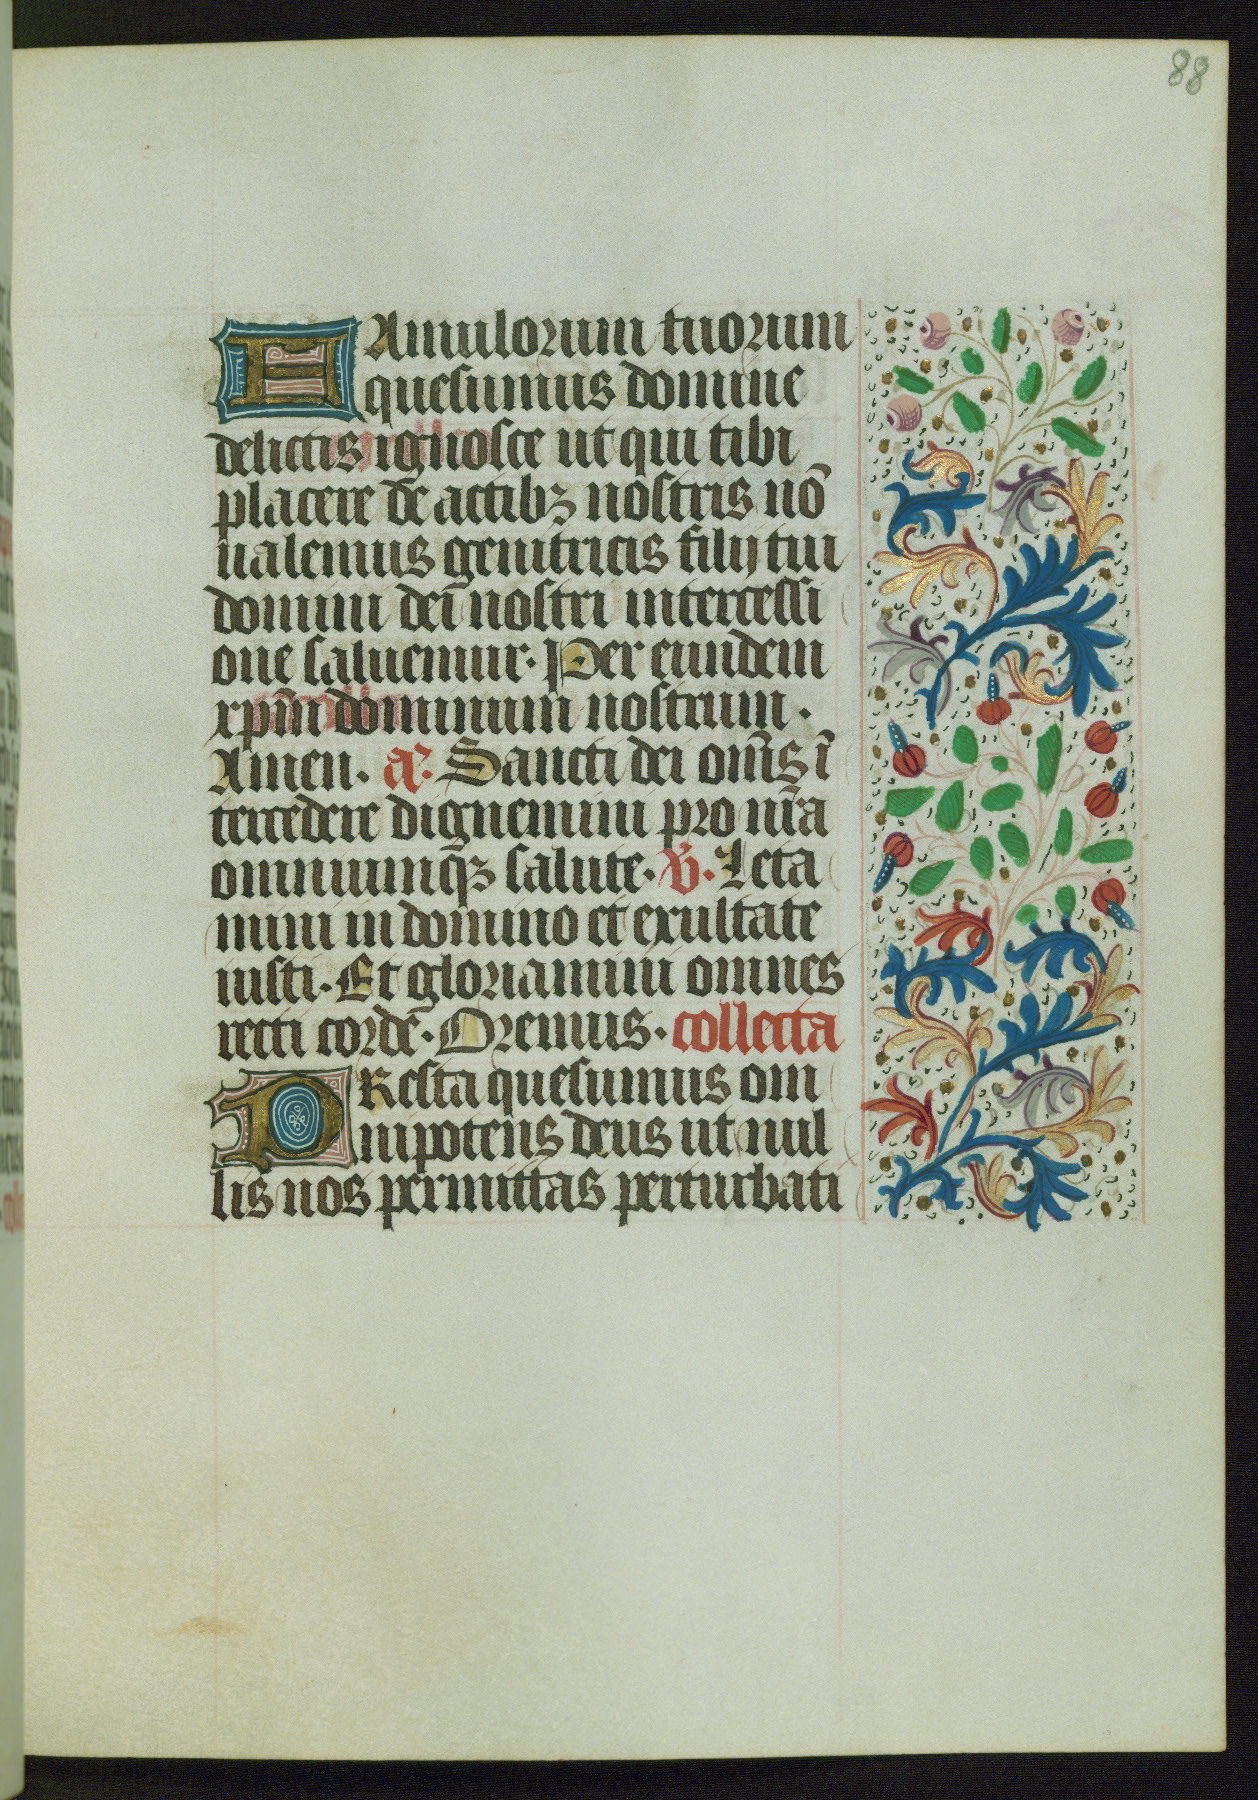 88
FAmulorum tuorum
quesumus domine
delictis ignosce ut qui tibi
placere de actibꝫ nostris nō
ualemus genitricis filij tui
domini dei nostri intercessi
one saluemur. Per eundem
xp̄m dominum nostrum.
Amen. a᷒. Sancti dei om̄s ī
tercedere dignemini pro nr̄a
omniumqꝫ salute. v̄. Leta
mini in domino et exultate
iusti. Et gloriamini omnes
recti corde. Oremus. collecta
PResta quesumus om
nipotens deus ut nul
lis nos permittas perturbati